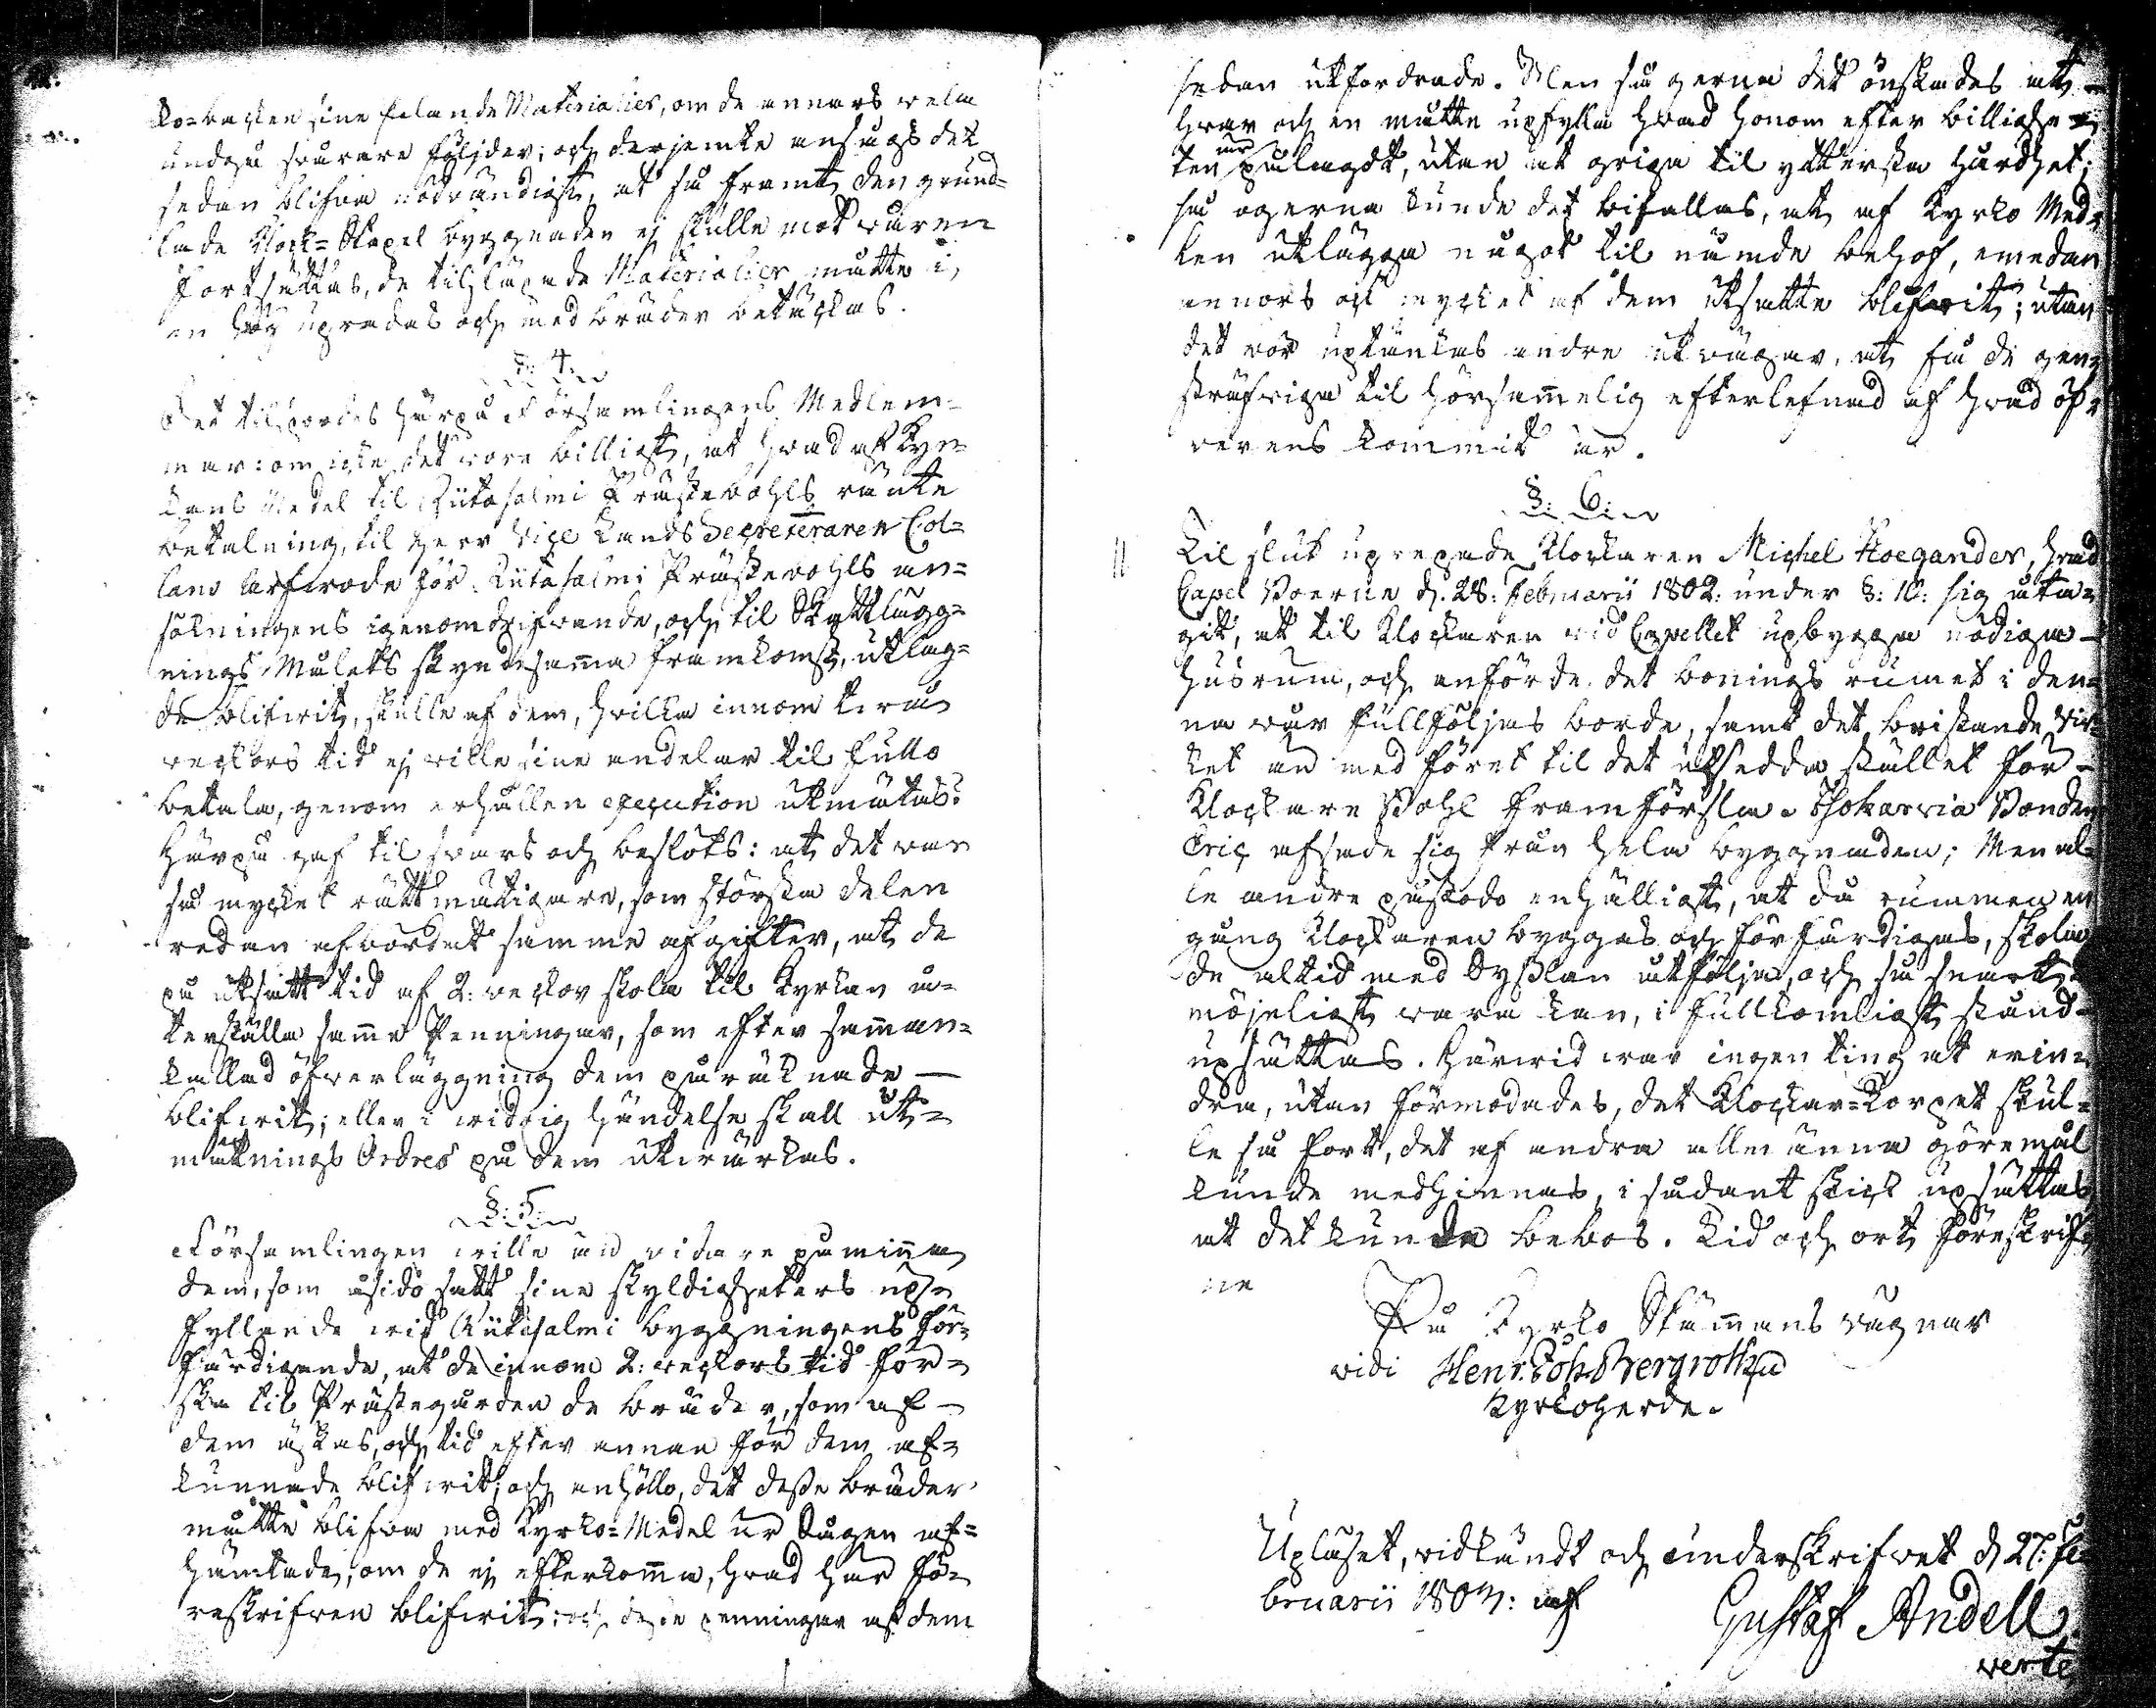 ko-backen sine felande Materialier, om de annars wela
undgå swårare följder; och derjemte ansågs det
sedan blifwa nödwändigt, at så framt den grund-
lade Klock-Stapel byggnaden ej skulle mot wåren
fortsättas, de tilsläpade Materialier måtte i
en hög upradas och med bräder betäckas.
§: 4:
Det tilspordes härpå Församlingens Medlem-
mar: om icke det wore billigt, at hwad af Kyr-
kans Medel til Rütesalmi Prästebohls ränte
betalning, til Herr Vice Lands Secreteraren Col-
lans arfwode för Rütasalmi Prästebohls an-
sökningens igenomdrifwande, och til Skattlägg-
nings Målets skyndesamma framkomst, utlag-
de blifwit, skulle af dem, hwilka innom twå
weckors tid ej wille sine andelar til fullo
betala, genom erhållen execution utmätas?
Härpå gaf til swars och beslöts: at det war
så mycket rättmätigare, som största delen
redan afbördat samme afgifter, at de
på utsatt tid af 2: weckor skola til Kyrkan å-
terställa samme Penningar, som efter samman-
kallad öfwerläggning dem påräknade
blifwit; eller i widrig händelse skall ut-
mätnings Ordres på dem utwärkas.
§: 5:
Församlingen wille än widare påminna
dem, som åsido satt sine skyldigheters up-
fyllende wid Rütesalmi byggningens för-
färdigande, at de innom 2: weckors tid för-
ska til Prästegården de bräder, som af
dem äskas, och tid efter annan för dem af-
kunnade blifwit; och enhöllo, det desse bräder
måtte blifwa med Kyrko-Medel ur Sågen af-
hämtade, om de ej efterkomma, hwad här fö-
reskrifwen blifwit: och desse penningar af dem
sedan utfordrade. Men så gerna det önskades at
hwar och en måtte upfylla hwad honom efter billighe-
ten är pålagdt, utan at gripa til yttersta hårdhet;
så ogerna kunde det bifallas, at af Kyrko Med-
len utlägga något til nämde behof, emedan
annors ock mycket af dem utsatte blifwit; utan
det bör uptänkas andre utwägar, at få de gen-
sträfwiga til hörsammelig efterlefnad af hwad öf-
werens kommit är.
§: 6:
Til slut uprepade Klockaren Michel Hoegander, hwad
Capel Boerne d. 28: Februarii 1802: under §: 10: sig åta-
git, at til Klockaren wid Capellet upbygga nödiga
husrum, och anförde det bonings rumet i den-
na wår fullföljas borde, samt det bristande Vir-
ket än med föret til det utsedda stället för
Klockare Bohl framförslas. Thokarvia Bonden
Eric afsade sig från hela byggnaden; Men al-
le andre påstodo enhälligt, at då rummen en
gång Klockaren byggas och förfärdigas, skola
de altid med Syßlan åtfölja, och så snart
möjeligt wara kan, i fullkomligt stånd
upsättas. Härwid war ingen ting at erin-
dra, utan förmodades, det Klockar-Torpet skul-
le så fort, det af andra allmänna göremål
kunde medhinnas, i sådant skick upsättas
at det kunde bebos. Tid och ort föreskrif-
ne
På Kyrko Stämmans wägnar
vidi Henr. Joh. Bergroth
Kyrkoherde.
Upläset, widkändt och underskrifwet d 27: Fe-
bruarii 1803: af
Gustaf Andell
verte